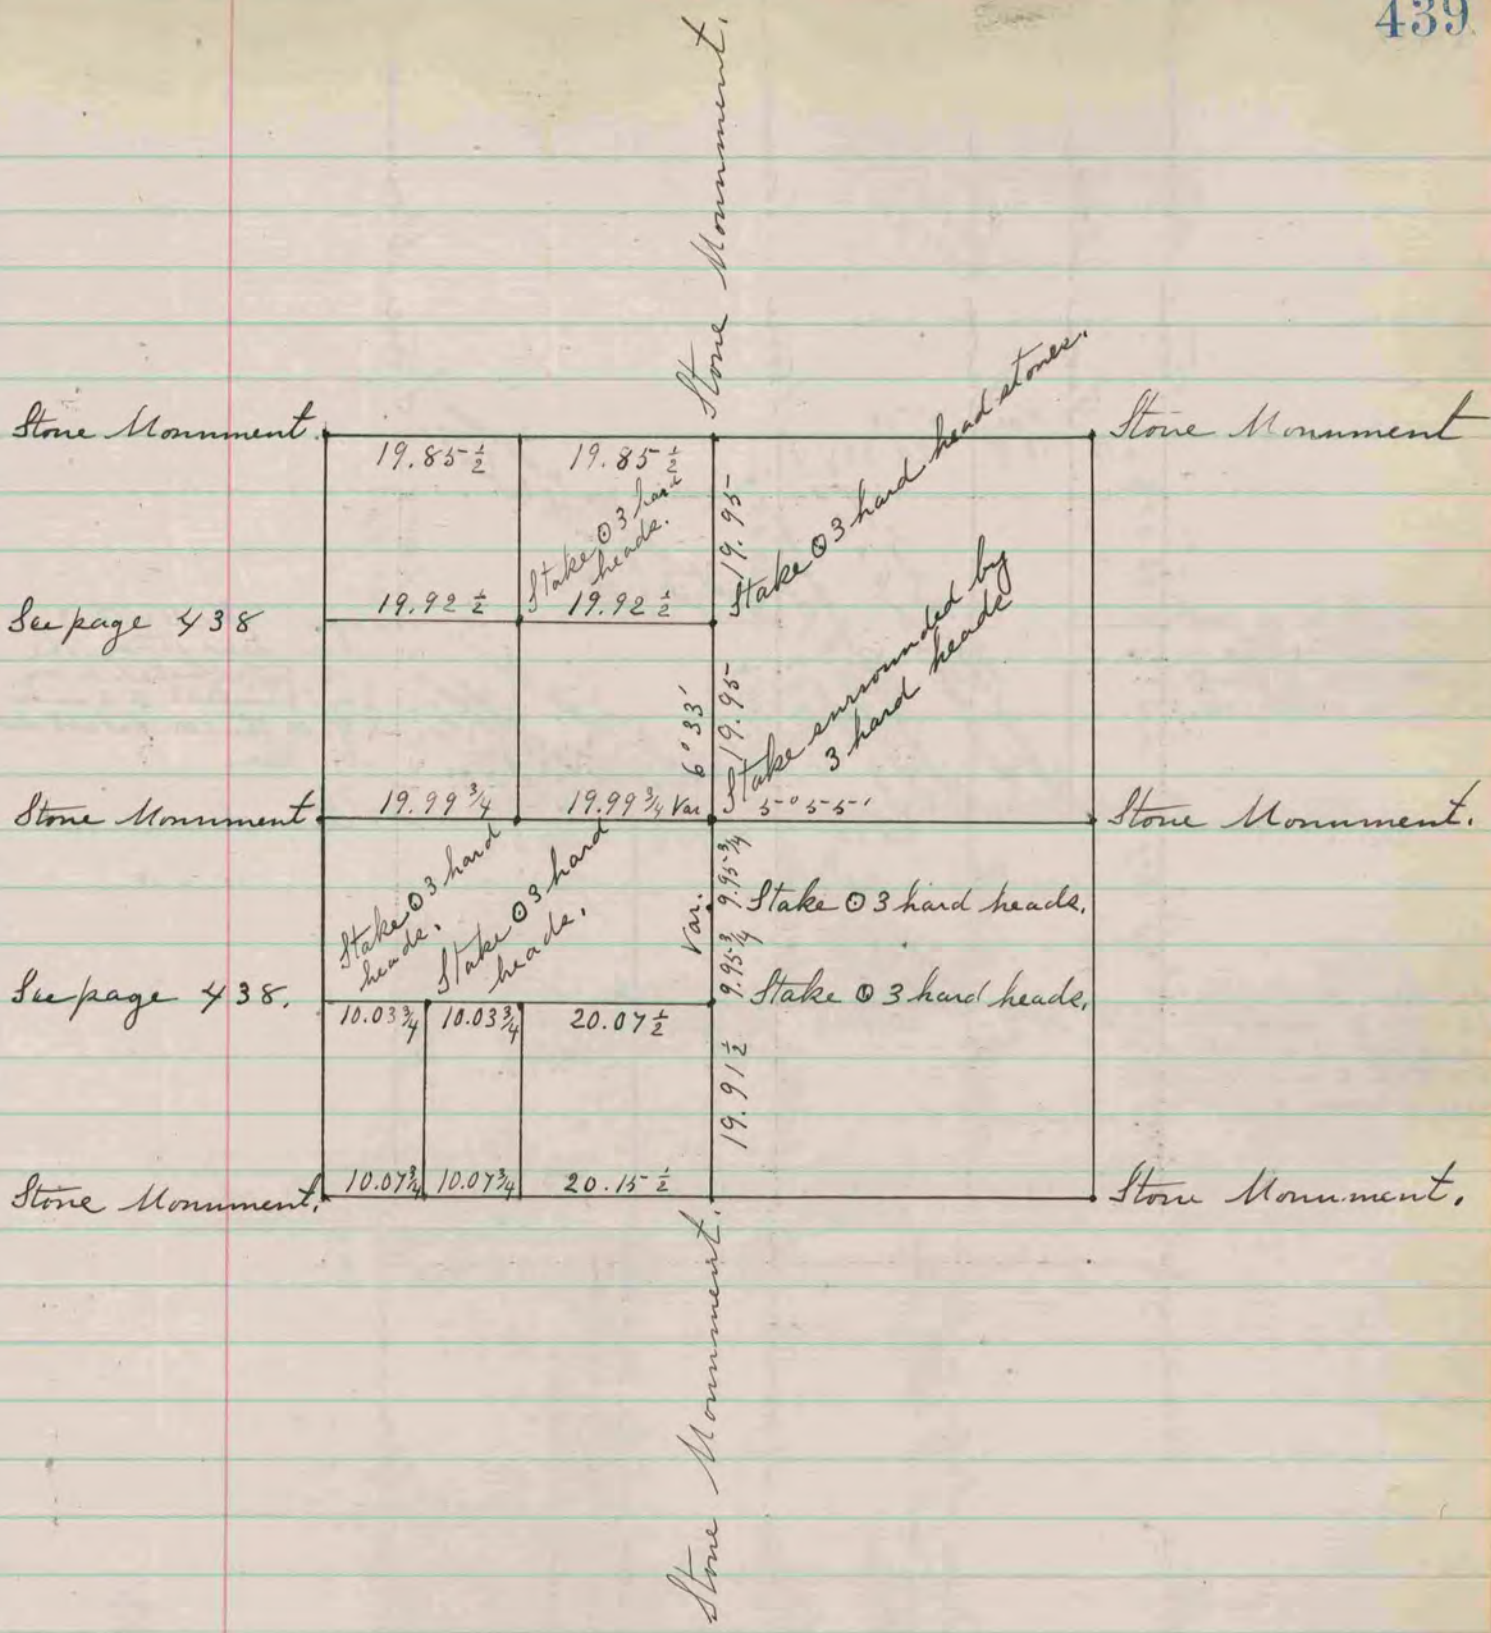 439
Stone Monument.
Stone Monument.
Stone Monument
19.85 ½
19.85 ½
19.95
Stake ⊙ 3 hard
heads.
Stake ⊙ 3 hard head stones.
See page 438
19.92 ½
19.92 ½
6° 33'
19.95
Stake surrounded by
3 hard heads
Stone Monument
19.99 ¾
19.99 ¾ Var
5° 55'
Stone Monument.
Stake ⊙ 3 hard
heads.
Stake ⊙ 3 hard
heads.
Var.
9.95 ¾
Stake ⊙ 3 hard heads.
9.95 ¾
Stake ⊙ 3 hard heads.
See page 438.
10.03 ¾
10.03 ¾
20.07 ½
19.91 ½
Stone Monument.
10.07 ¾
10.07 ¾
20.15 ½
Stone Monument.
Stone Monument.